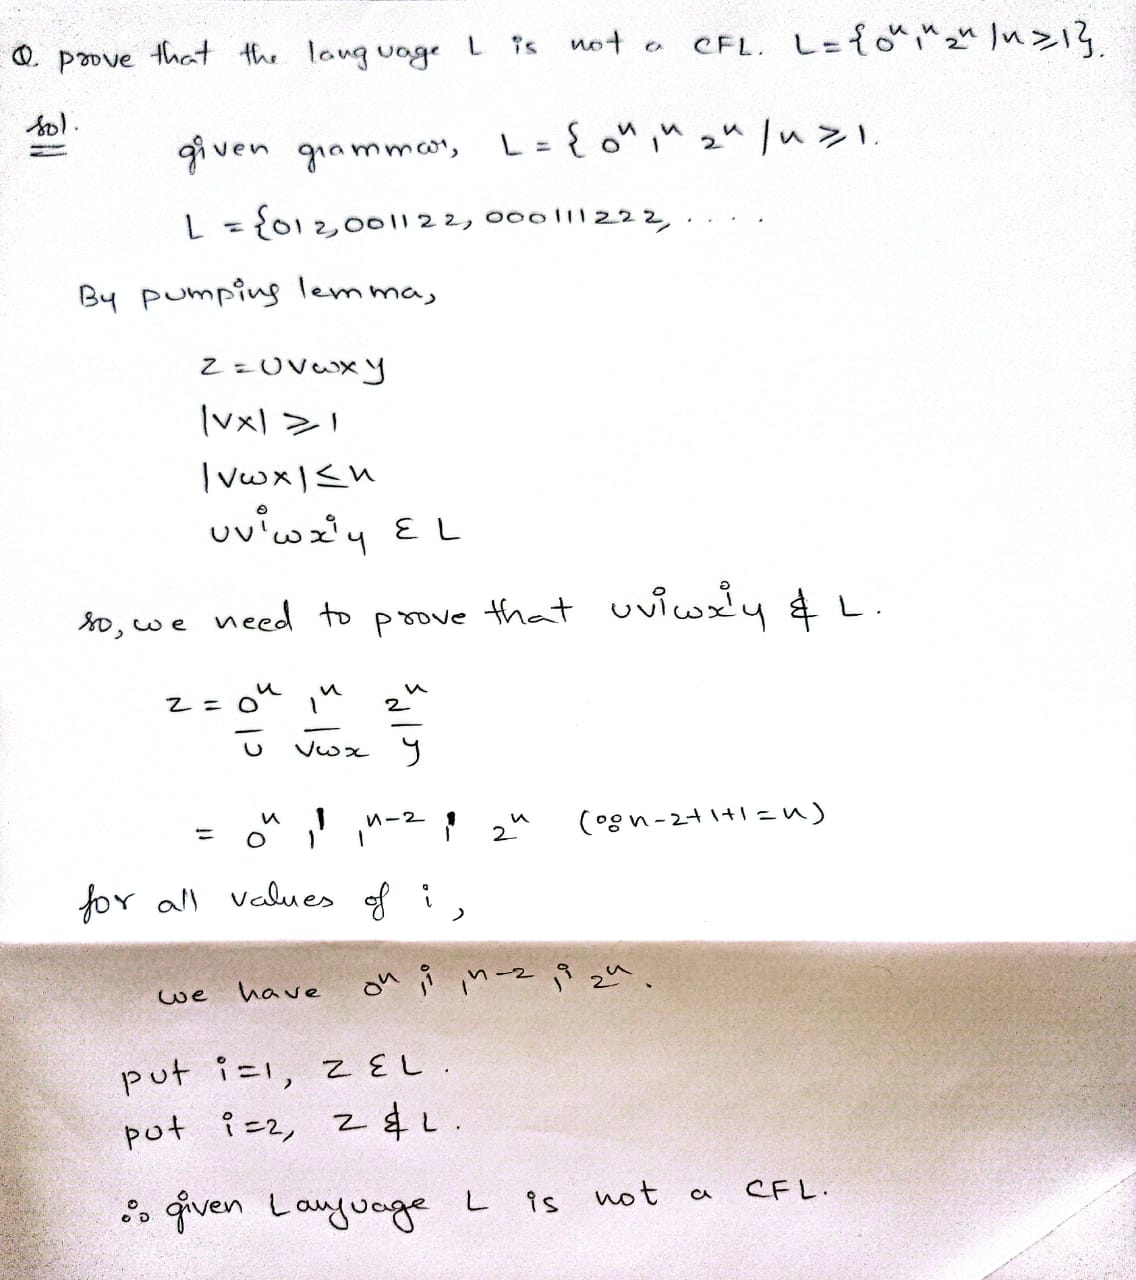 Q. prove that the language L is not a CFL. L={0ⁿ1ⁿ2ⁿ/n≥1}.
sol.
given grammar, L = { 0ⁿ 1ⁿ 2ⁿ / n ≥ 1.
L = {012, 001122, 000111222, ....
By pumping lemma,
z = uvwxy
|vx| ≥ 1
|vwx| ≤ n
uvⁱwxⁱy ε L
so, we need to prove that uvⁱwxⁱy ∉ L.
z = 0ⁿ 1ⁿ 2ⁿ
u vwx y
= 0ⁿ 1¹ 1ⁿ⁻² 1¹ 2ⁿ (∵ n-2+1+1=n)
for all values of i,
we have 0ⁿ 1ⁱ 1ⁿ⁻² 1ⁱ 2ⁿ.
put i=1, z ε L.
put i=2, z ∉ L.
∴ given Language L is not a CFL.